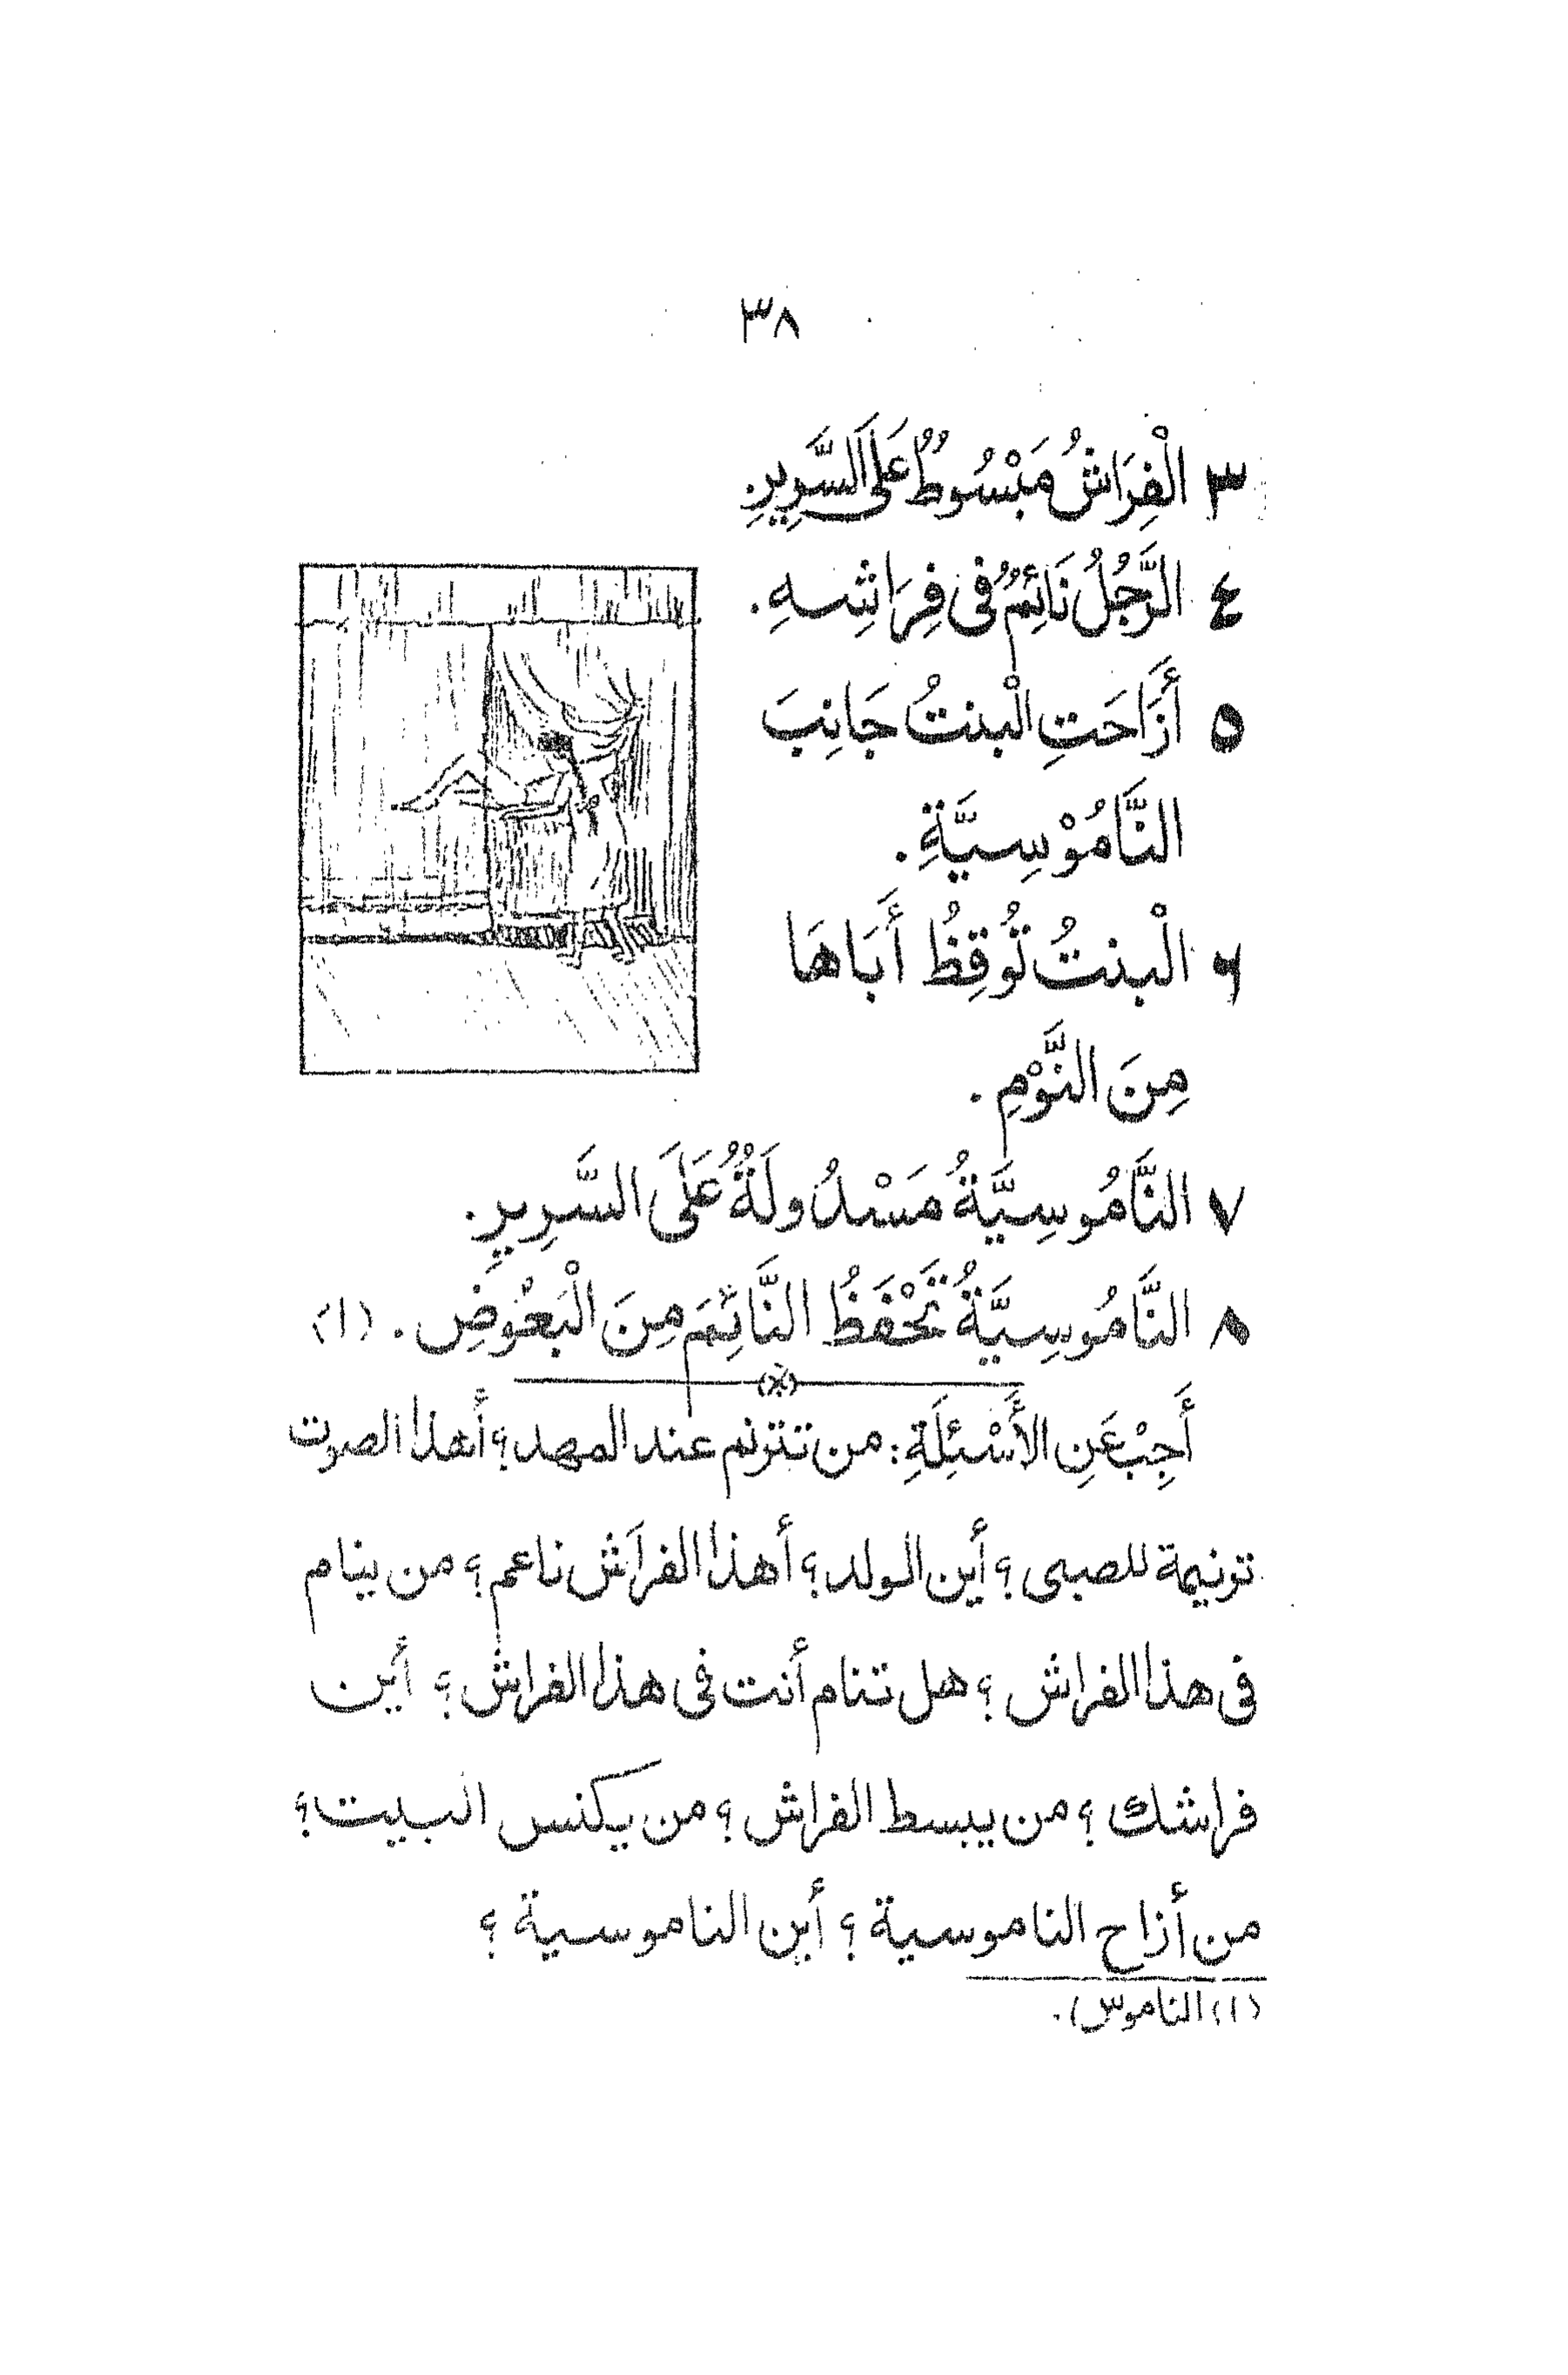 ٣٨
٣ الْفِرَاشُ مَبْسُوطٌ عَلَى السَّرِيرِ.
٤ الرَّجُلُ نَائِمٌ فى فِرَاشِهِ.
٥ أَزَاحَتِ الْبنتُ جَانِبَ
النَّامُوْسِيَّةِ.
٦ الْبنتُ تُوقِظُ أَبَاهَا
مِنَ النَّوْمِ.
٧ النَّامُوسِيَّةُ مَسْدُولَةٌ عَلَى السَّرِيرِ.
٨ النَّامُوسِيَّةُ تَحْفَظُ النَّائِمَ مِنَ الْبَعُوْضِ. (١)
أَجِبْ عَنِ الأَسْئِلَةِ: من تترنم عند المهد؟ أهذا الصوت
ترنيمة للصبى؟ أين الولد؟ أهذا الفراش ناعم؟ من ينام
فى هذا الفراش؟ هل تنام أنت فى هذا الفراش؟ أين
فراشك؟ من يبسط الفراش؟ من يكنس البيت؟
من أزاح الناموسية؟ أين الناموسية؟
(١) (الناموس).